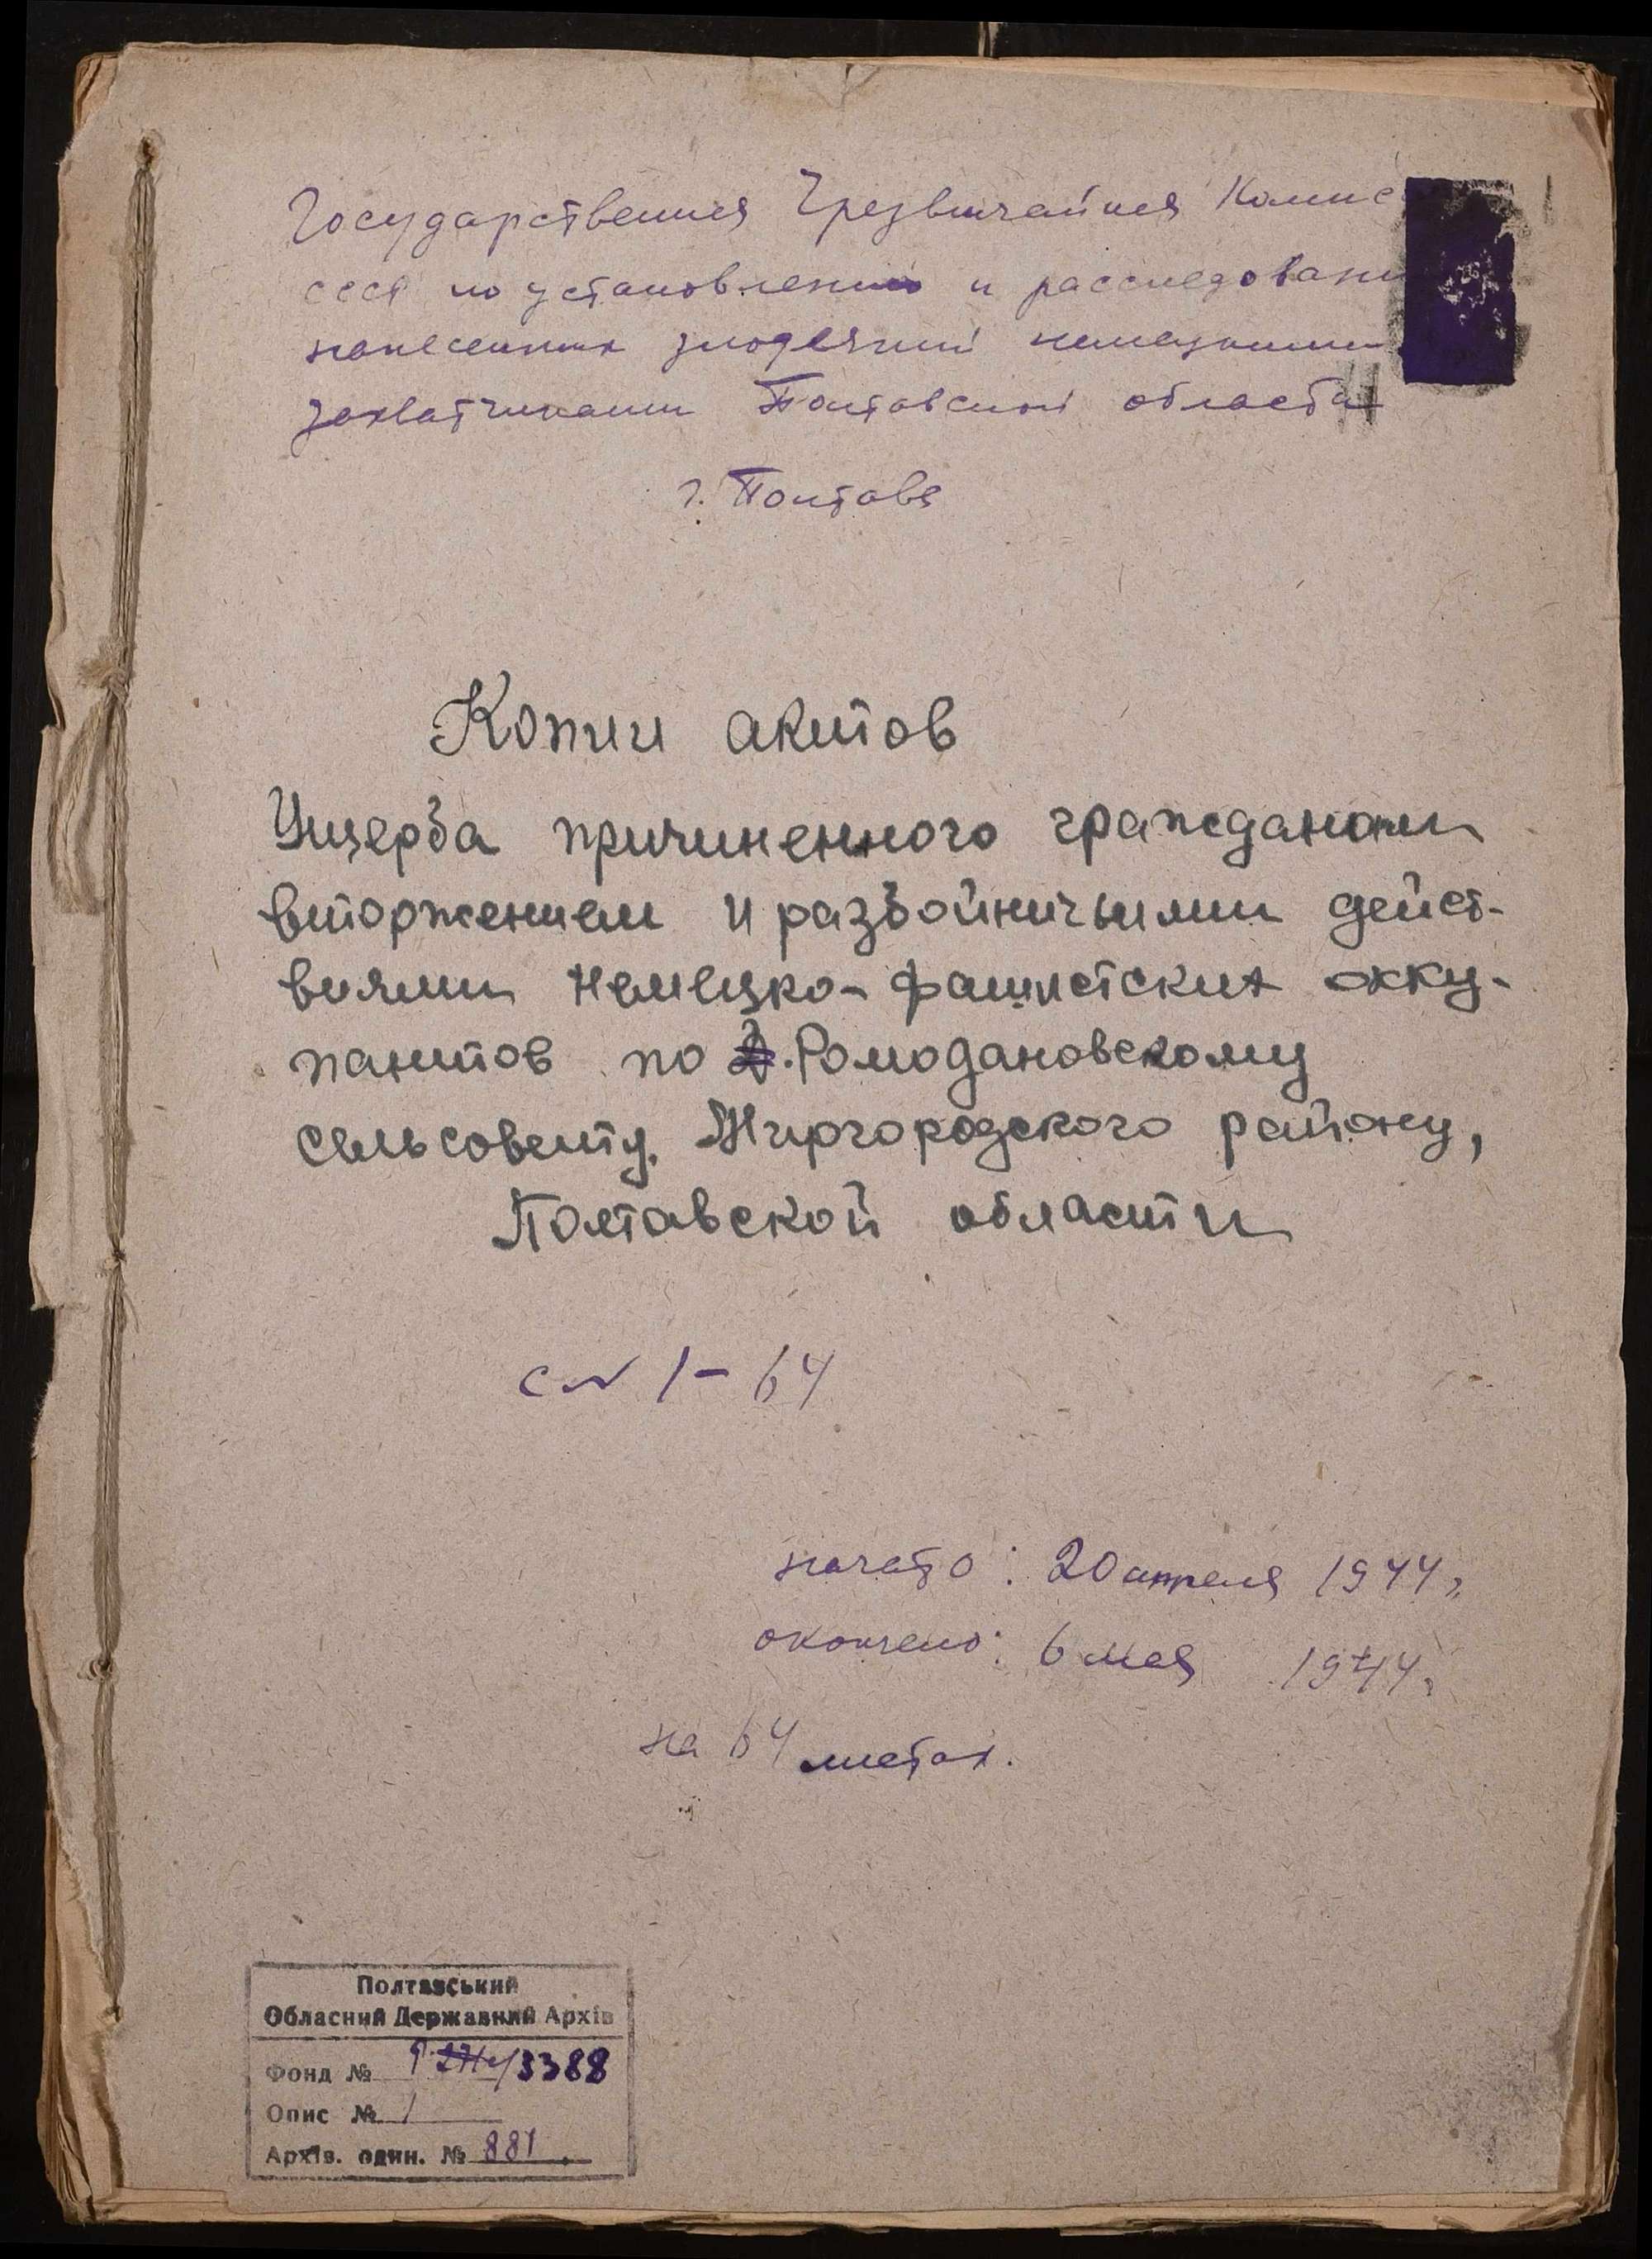 Государственная Чрезвычайная Комис
ссся по установлению и расследовани
нанесенных злодеяний немецкими
захватчиками Полтавской области
г. Полтава
Копии актов
Ущерба причиненного гражданам
вторжением и разбойничьими дейст-
виями немецко-фашистских окку-
пантов по Ромодановскому
сельсовету, Миргородского району,
Полтавской области
с № 1-64
начато: 20 апреля 1944 г.
окончено: 6 мая 1944 г.
на 64 листах.
Полтавський
Обласний Державний Архів
Фонд № 3388
Опис № 1
Архів. один. № 881.